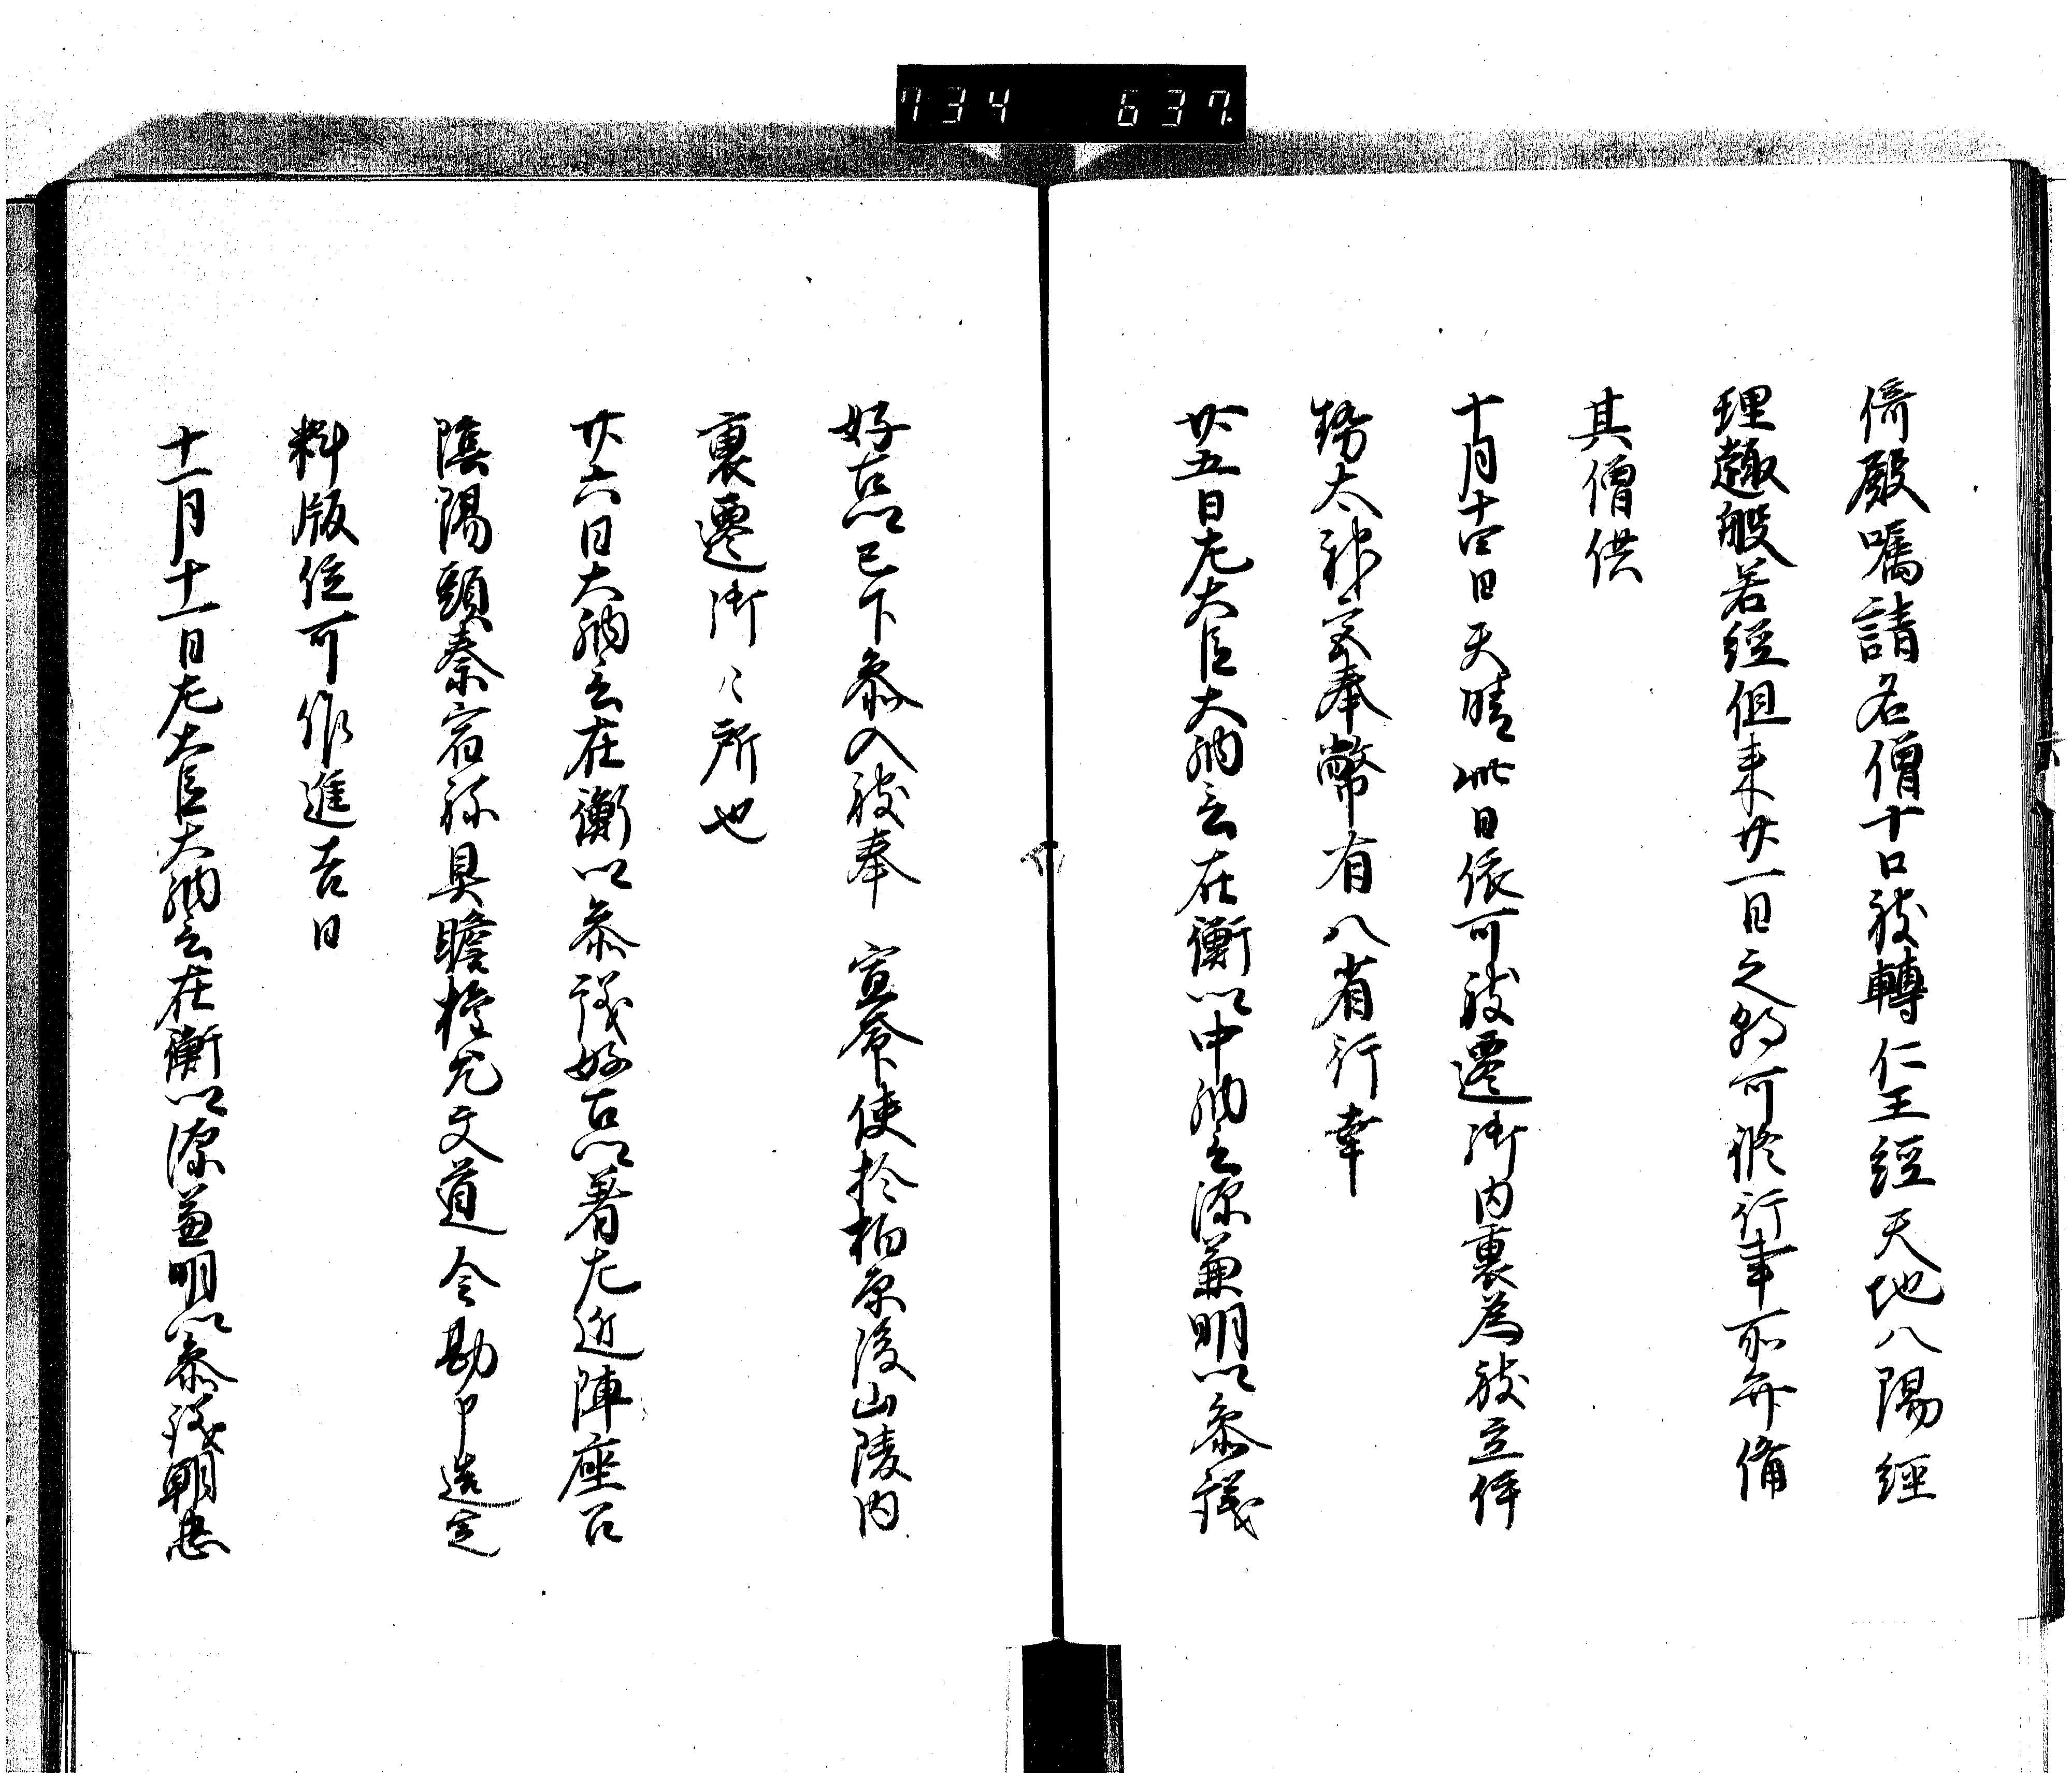 734 637.
倚殿囑請名僧十口被轉仁王經天地八陽經
理趣般若經但来廿一日之朝可修行事所弁備
其僧供
十月十四日天晴此日依可被遷御内裏為被立伊
勢太神宮奉幣有八省行幸
廿五日左大臣大納言在衡以中納言源兼明以参議
好古以已下参入被奉　宣命使於柏原後山陵内
裏遷御々所也
廿六日大納言在衡以参議好古以著左近陣座召
陰陽頭秦宿祢具瞻権允文道令勘申造定
料版位可作進吉日
十一月十一日左大臣大納言在衡以源兼明以参議朝忠